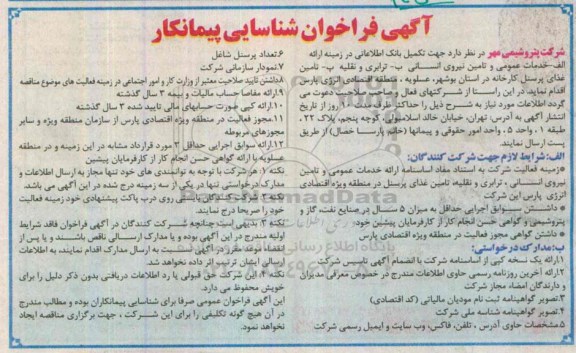 آگهی فراخوان شناسایی پیمانکار
شرکت پتروشیمی مهر در نظر دارد جهت تکمیل بانک اطلاعاتی در زمینه ارائه
الف-خدمات عمومی و تامین نیروی انسانی ب- ترابری و نقلیه پ- تامین
غذای پرسنل کارخانه در استان بوشهر، عسلویه ، منطقه اقتصادی انرژی پارس
اقدام نماید. در این راستا از شرکتهای فعال و صاحب صلاحیت دعوت می
گردد اطلاعات مورد نیاز به شرح ذیل را حداکثر ظرف روز از تاریخ
انتشار آگهی به آدرس: تهران، خیابان خالد اسلامبولی، کوچه پنجم، پلاک ۲۲،
طبقه ۱، واحد ۵، واحد امور حقوقی و پیمانها (خانم پارسا خصال) از طریق
پست ارسال نمایند.
الف: شرایط لازم جهت شرکت کنندگان:
*زمینه فعالیت شرکت به استناد مفاد اساسنامه ارائه خدمات عمومی و تامین
نیروی انسانی ، ترابری و نقلیه، تامین غذای پرسنل در منطقه ویژه اقتصادی
انرژی پارس این شرکت
* داشتن سوابق اجرایی حداقل به میزان ۵ سال در صنایع نفت، گاز و
پتروشیمی و گواهی حسن انجام کار از کارفرمایان پیشین خود.
* داشتن گواهی مجوز فعالیت در منطقه ویژه اقتصادی پارس
ب: مدارک درخواستی:
۱.ارائه یک نسخه کپی از اساسنامه شرکت با انضمام آگهی تاسیس شرکت
۲.ارائه آخرین روزنامه رسمی حاوی اطلاعات مندرج در خصوص معرفی مدیران
و دارندگان امضاء مجاز شرکت
۳.تصویر گواهینامه ثبت نام مودیان مالیاتی (کد اقتصادی)
۴.تصویر گواهینامه شناسه ملی شرکت
۵.مشخصات حاوی آدرس ، تلفن، فاکس، وب سایت و ایمیل رسمی شرکت
۶.تعداد پرسنل شاغل
۷.نمودار سازمانی شرکت
۸.داشتن تایید صلاحیت معتبر از وزارت کار و امور اجتماعی در زمینه فعالیت های موضوع مناقصه
۹.ارائه مفاصا حساب مالیات و بیمه ۳ سال گذشته
۱۰.ارائه کپی صورت حسابهای مالی تایید شده ۳ سال گذشته
۱۱.مجوز فعالیت در منطقه ویژه اقتصادی پارس از سازمان منطقه ویژه و سایر
مجوزهای مربوطه
۱۲.ارائه سوابق اجرایی حداقل ۳ مورد قرارداد مشابه در این زمینه و در منطقه
عسلویه با ارائه گواهی حسن انجام کار از کارفرمایان پیشین
نکته ۱: هر شرکت با توجه به توانمندی های خود تنها مجاز به ارسال اطلاعات و
مدارک درخواستی تنها در یکی از سه زمینه درج شده در این آگهی می باشد.
نکته ۲: شرکت کنندگان بایستی روی درب پاکت پیشنهادی خود زمینه فعالیت
خود را صریحا درج نمایند.
نکته ۳: بدیهی است چنانچه شرکت کنندگان در آگهی فراخوان فاقد شرایط
اولیه مندرج در این آگهی بوده و یا مدارک ارسالی ناقص باشند و یا پس از
انقضاء موعد مقرر در آگهی نسبت به ارسال مدارک اقدام نمایند، به اطلاعات
ارسالی ایشان ترتیب اثر داده نخواهد شد.
نکته ۴: این شرکت حق قبولی یا رد اطلاعات دریافتی بدون ذکر دلیل را برای
خویش محفوظ می دارد.
این آگهی فراخوان عمومی صرفا برای شناسایی پیمانکاران بوده و مطالب مندرج
در آن هیچ گونه تکلیفی را برای این شرکت ، جهت برگزاری مناقصه ایجاد
نخواهد نمود.